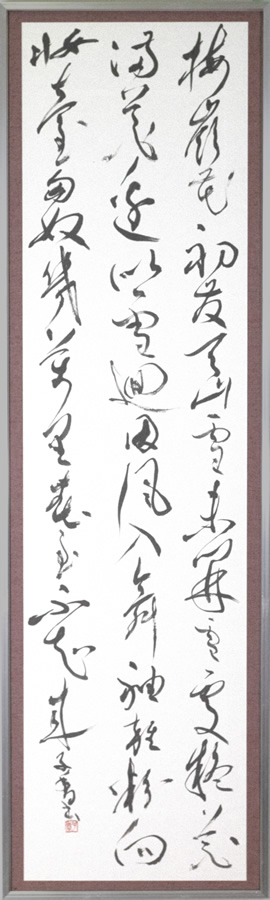 梅嶺花初發天山雪未開雪處疑花
滿花邊似雪迴因風入舞袖雜粉向
妝臺匈奴幾萬里春至不知來